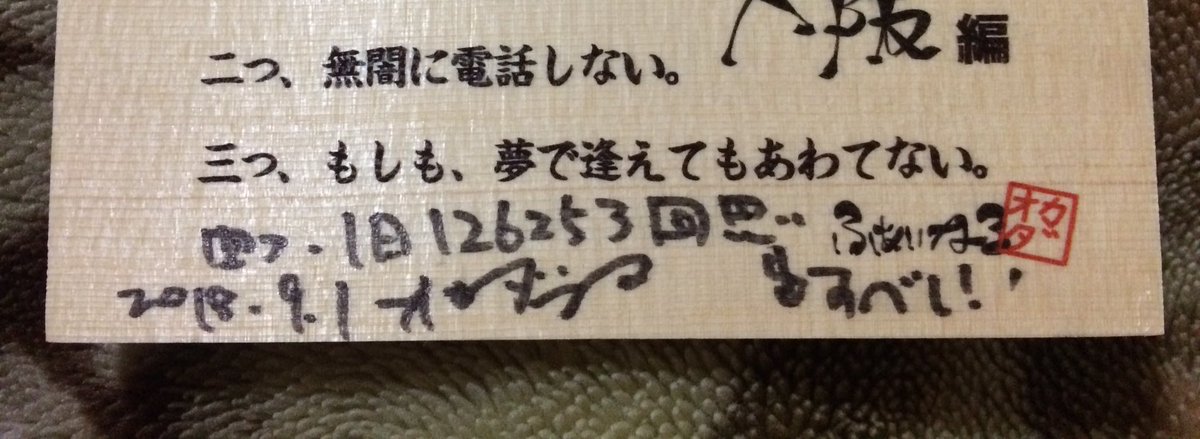 阪編
二つ、無闇に電話しない。
三つ、もしも、夢で逢えてもあわてない。
四つ、1日126253回
ふぁいなる
オカダ
2018.9.1
すべし!